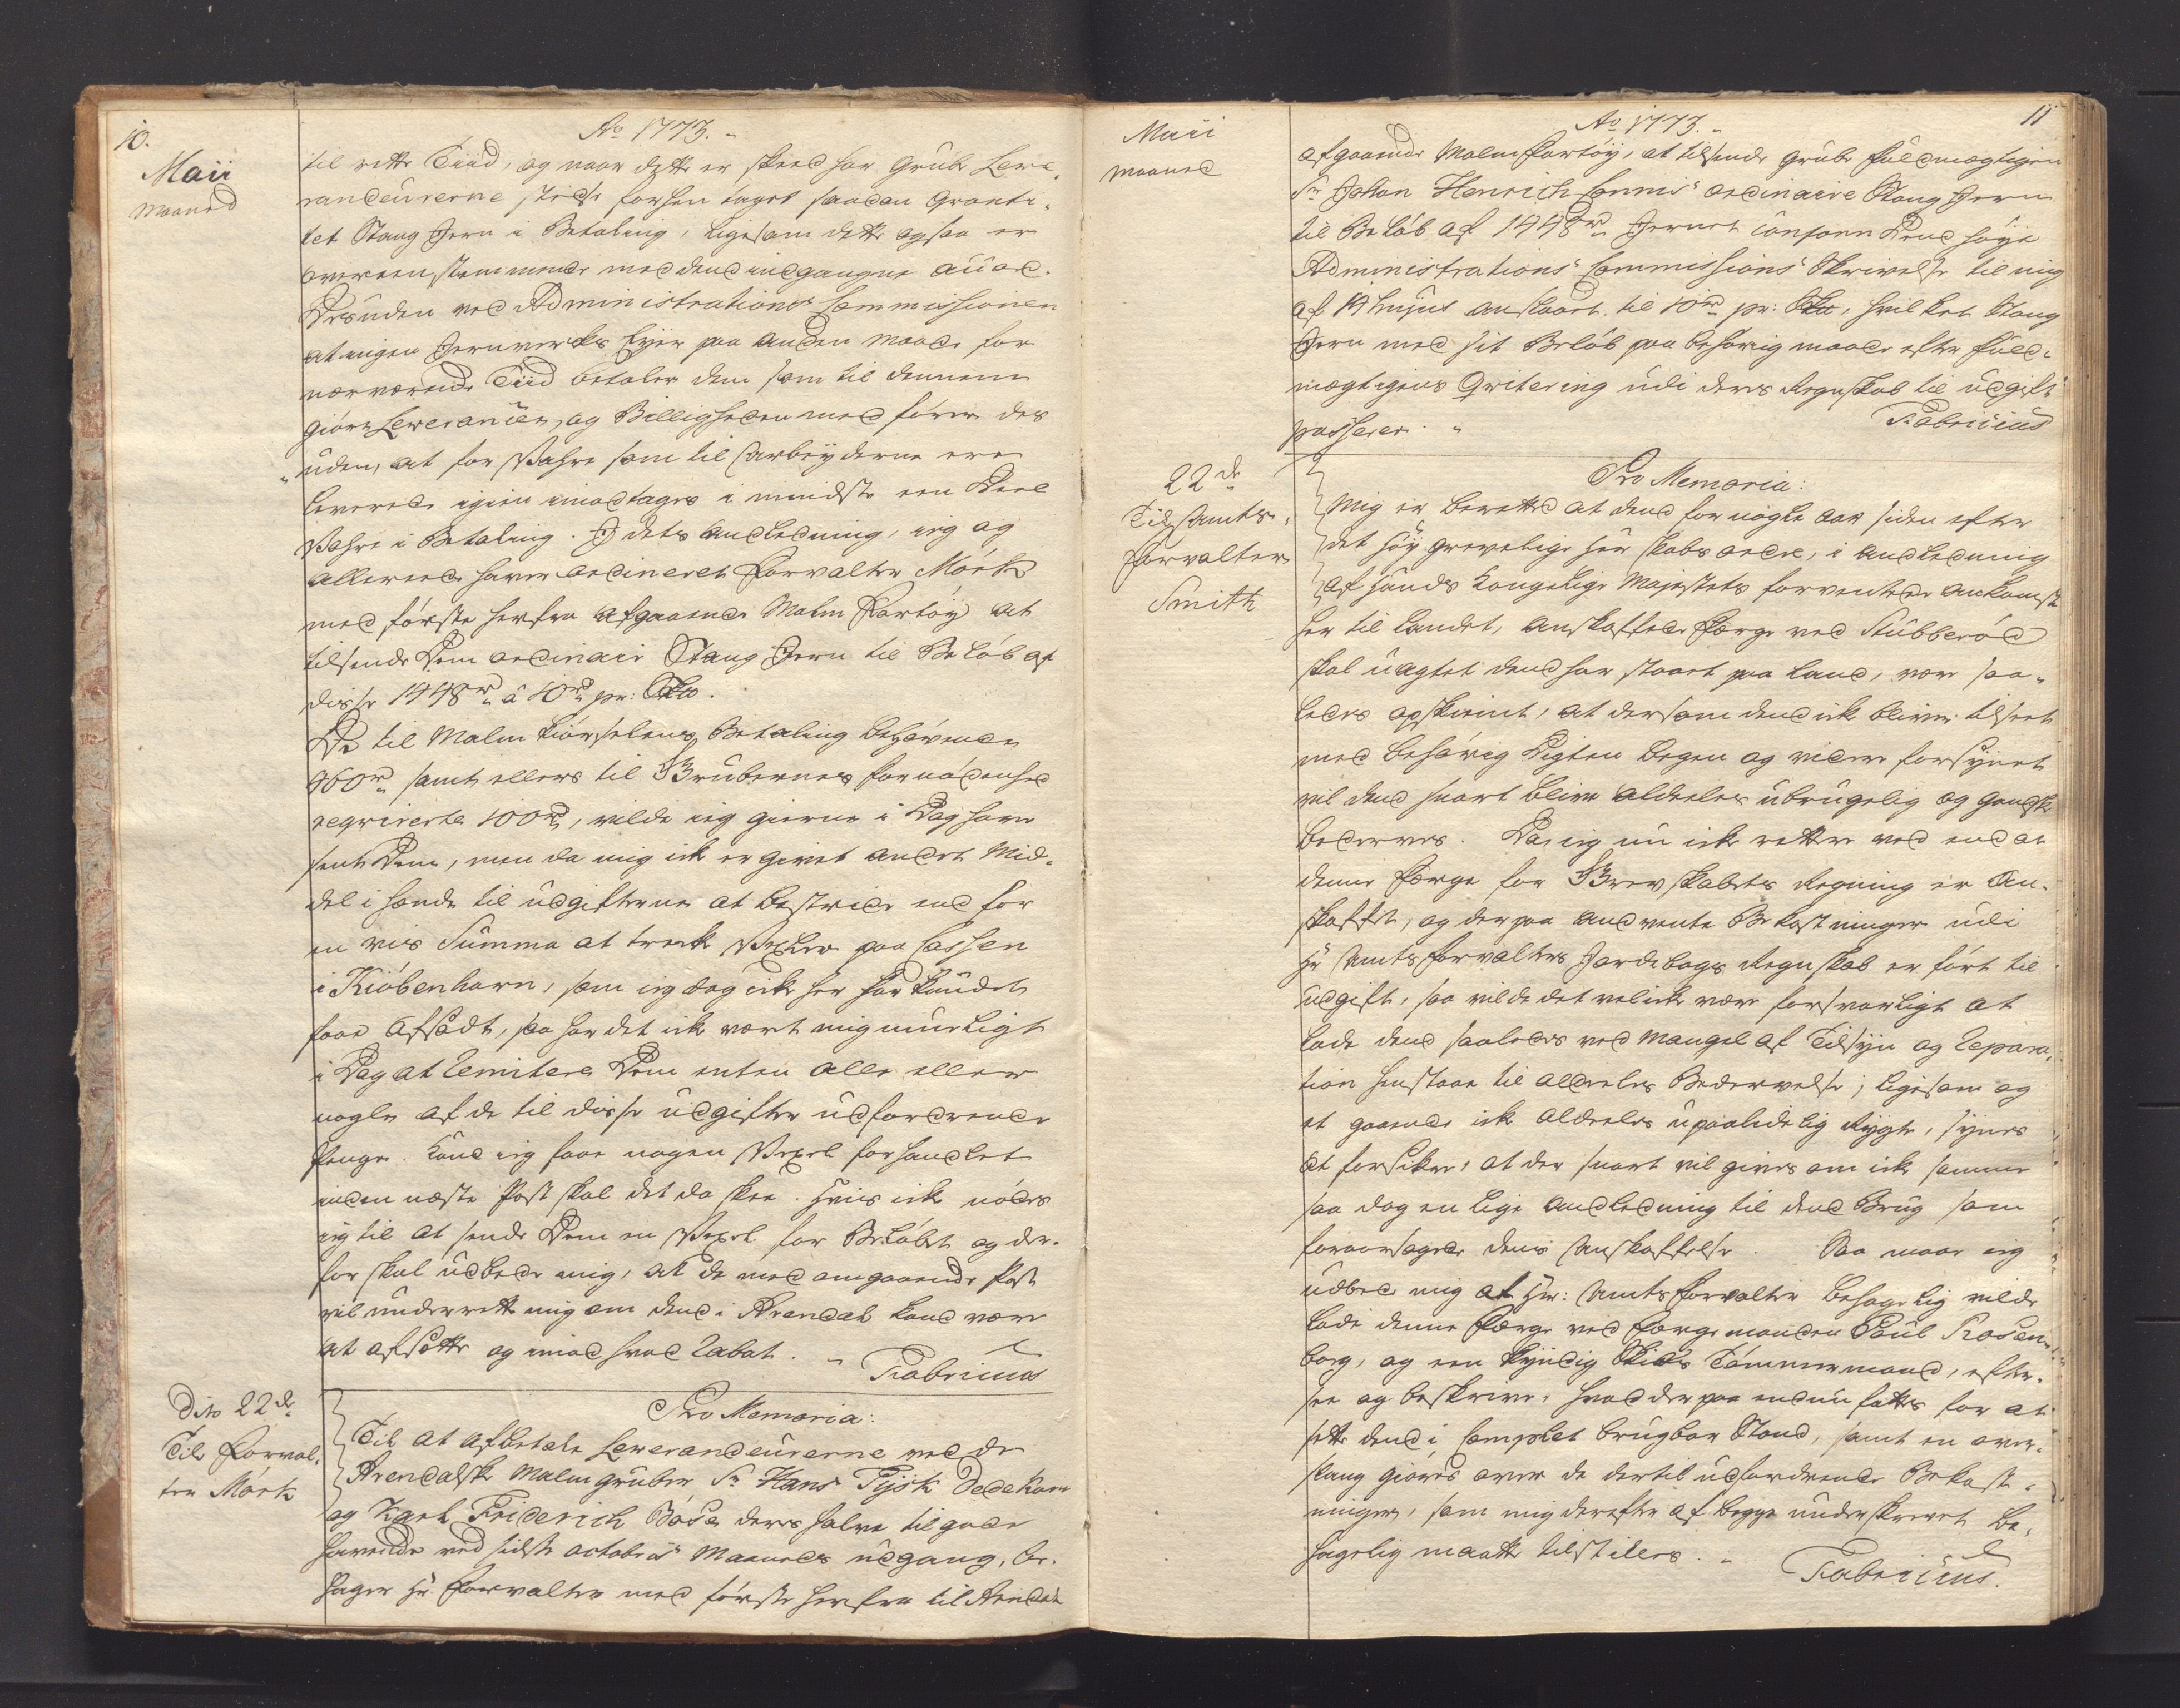 10.
Maii
Maaned
Ao 1773.
til rette Tiid, og naar dette er skeed har Grube Leve-
randeurerne stedse forhen taget saadan Qvanti-
tet Stang Jern i Betaling, ligesom dette ogsaa er
overeenstemmende med dend indgangne accord.
Desuden veed Administrations Commissionen
at ingen Jernverks Eyer paa anden Maade for
nærværende Tiid betaler dem som til dennem
giøre Leverancer, og Billigheden med fører des
uden, at for Vahre som til Arbeyderne ere
leverede igien imodtages i mindste een Deel
Vahre i Betaling. I dets Andledning, jeg og
allereede haver ordineret Forvalter Mörk
med første herfra afgaaende Malm Fartøy at
tilsende Dem ordinair Stang Jern til Beløb af
disse 1448 rd. â 10 rd. pr:
De til Malm Kiørselens Betaling behøvende
960 rd. samt ellers til Grubernes Fornødenhed
reqvirerte 100 rd., vilde jeg gierne i Dag have
sent Dem, men da mig ikke er givet andet Mid-
del i hænde til udgifterne at bestride end for
en vis Summa at trække Vexler paa Cassen
i Kiøbenhavn, som jeg dog ikke her har kundet
faae afsadt, saa har det ikke vært mig mueligt
i Dag at remitere Dem enten alle eller
nogle af de til disse udgifter udfordrende
Penge. Kand jeg faae nogen Vexel forhandlet
inden næste Post skal det da skee. Hvis ikke nødes
jeg til at sende Dem en Vexel for Beløbet og der-
for skal udbede mig, at de med omgaaende Post
vil underrette mig om dend i Arendal kand være
at afsette og imod hvad Rabat.
Fabricius
Dito 22de
Til Forval-
ter Mörk
Pro Memoria:
Til at afbetale Leverandeurerne ved de
Arendalske Malm gruber, Sr Hans Tijsk Dedekam
og Karl Friderich Bøse deres halve tilgode
havende ved sidste octobris Maaneds udgang, be-
hager Hr Forvalter med første herfra til Arendal
Maii
Maaned
Ao 1773.
11
afgaaende Malm Fartøy, at tilsende Grube Fuldmægtigen
Sr Johan Henrich Connis ordinaire Stang Jern
til Beløb af 1448 rd. Jernet conform Dend høye
Administrations Commissions Skrivelse til mig
af 14 hujus anslaaet til 10 rd. pr: hvilket Stang
Jern med sit Beløb paa behørig maade efter Fuld-
mægtigens Qvitering udi deres Regnskab til udgift
passerer.
Fabricius
22de
Til Amts-
forvalter
Smith
Pro Memoria:
Mig er berettet at dend for nogle aar siden efter
det høy grevelige Her skabs ordre, i Andledning
af Hands Kongelige Majestets forventede ankomst
her til Landet, anskaffede Færge ved Stubberød
skal uagtet dend har staaet paa Land, være saa-
ledes opskient, at dersom dend ikke bliver tilseet
med behørig Digten begen og videre forsynet
vil dend snart blive aldeeles ubrugelig og gandske
bederves. Da jeg nu ikke rettere veed end at
denne Færge for Grevskabets Regning er an-
skaffet, og der paa andvente Bekostninger udi
Hr Amtsforvalters Jordebogs Regnskab er ført til
udgift, saa vilde det vel ikke være forsvarligt at
lade dend saaledes ved Mangel af Tilsyn og Repara-
tion henstaae til aldeeles Bedervelse; ligesom og
et gaaende ikke aldeeles upaalidelig Rygte, synes
at forsikre, at der snart vil gives om ikke samme
saa dog en lige andledning til dend Brug som
foraarsagede dens Anskaffelse. Saa maae jeg
udbede mig at Hr: Amtsforvalter behagelig vilde
lade denne Færge ved Færgemanden Poul Rosen-
borg, og een kyndig Skibs Tømmermand, efter-
see og beskrive, hvad der paa endnu fattes for at
sette dend i Complet brugbar Stand, samt en over-
slaug giøres over de dertil udfordrende Bekost-
ninger, som mig derefter af begge underskrevet be-
hagelig maatte tilstilles.
Fabricius.